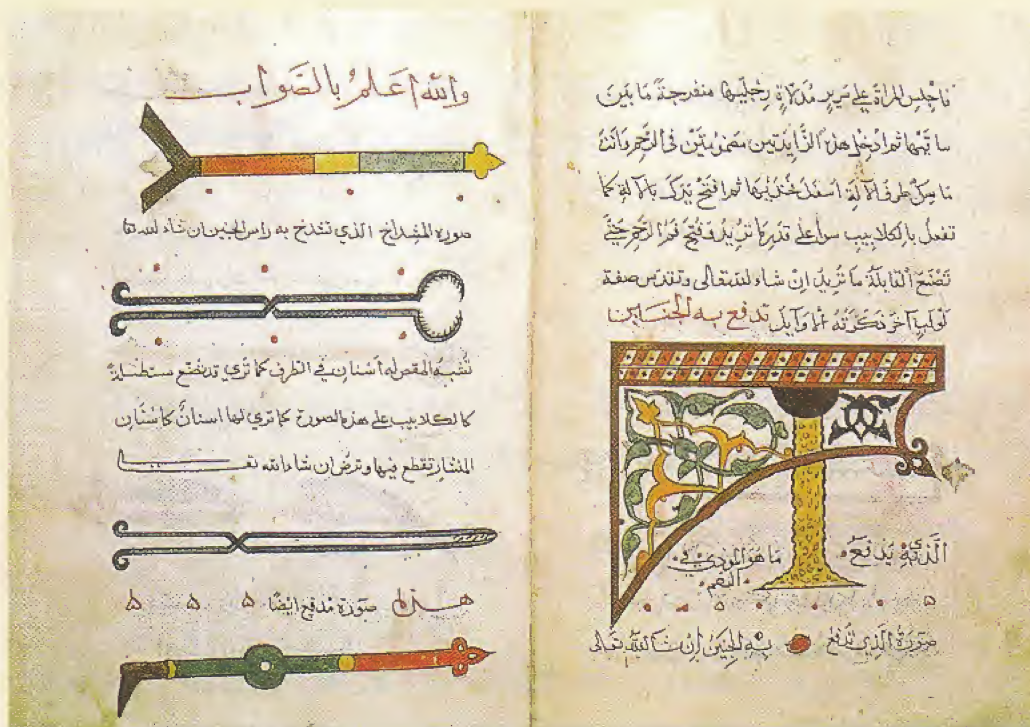 فاجلس المراة على سرير مدلاة رجليها منفرجة ما بين
ساقيها ثم ادخل هذه الزايدتين مضمومتين في الرحم وانت
ماسك طرف الالة اسفل فخذيها ثم افتح يدك بالالة كما
تفعل بالكلاليب سوا على قدر ما تريد وفتح فم الرحم حتى
تصنع القابلة ما تريد ان شاء الله تعالى صفة
لولب اخر ذكرته الاوايل تدفع به الجنين
الذي يدفع ما هو الموذي في الفم
صورة الذي تدفع به الجنين ان شا الله تعالى
والله اعلم بالصواب
صورة المشداخ الذي تشدخ به راس الجنين ان شاء الله
تشبه المقص له اسنان في الطرف كما ترى قد تصنع مستطيلة
كالكلاليب على هذه الصورة كما ترى لها اسنان كاسنان
المنشار تقطع فيها وترض ان شاء الله تعـ
هذه صورة مدفع ايضا ه ه ه